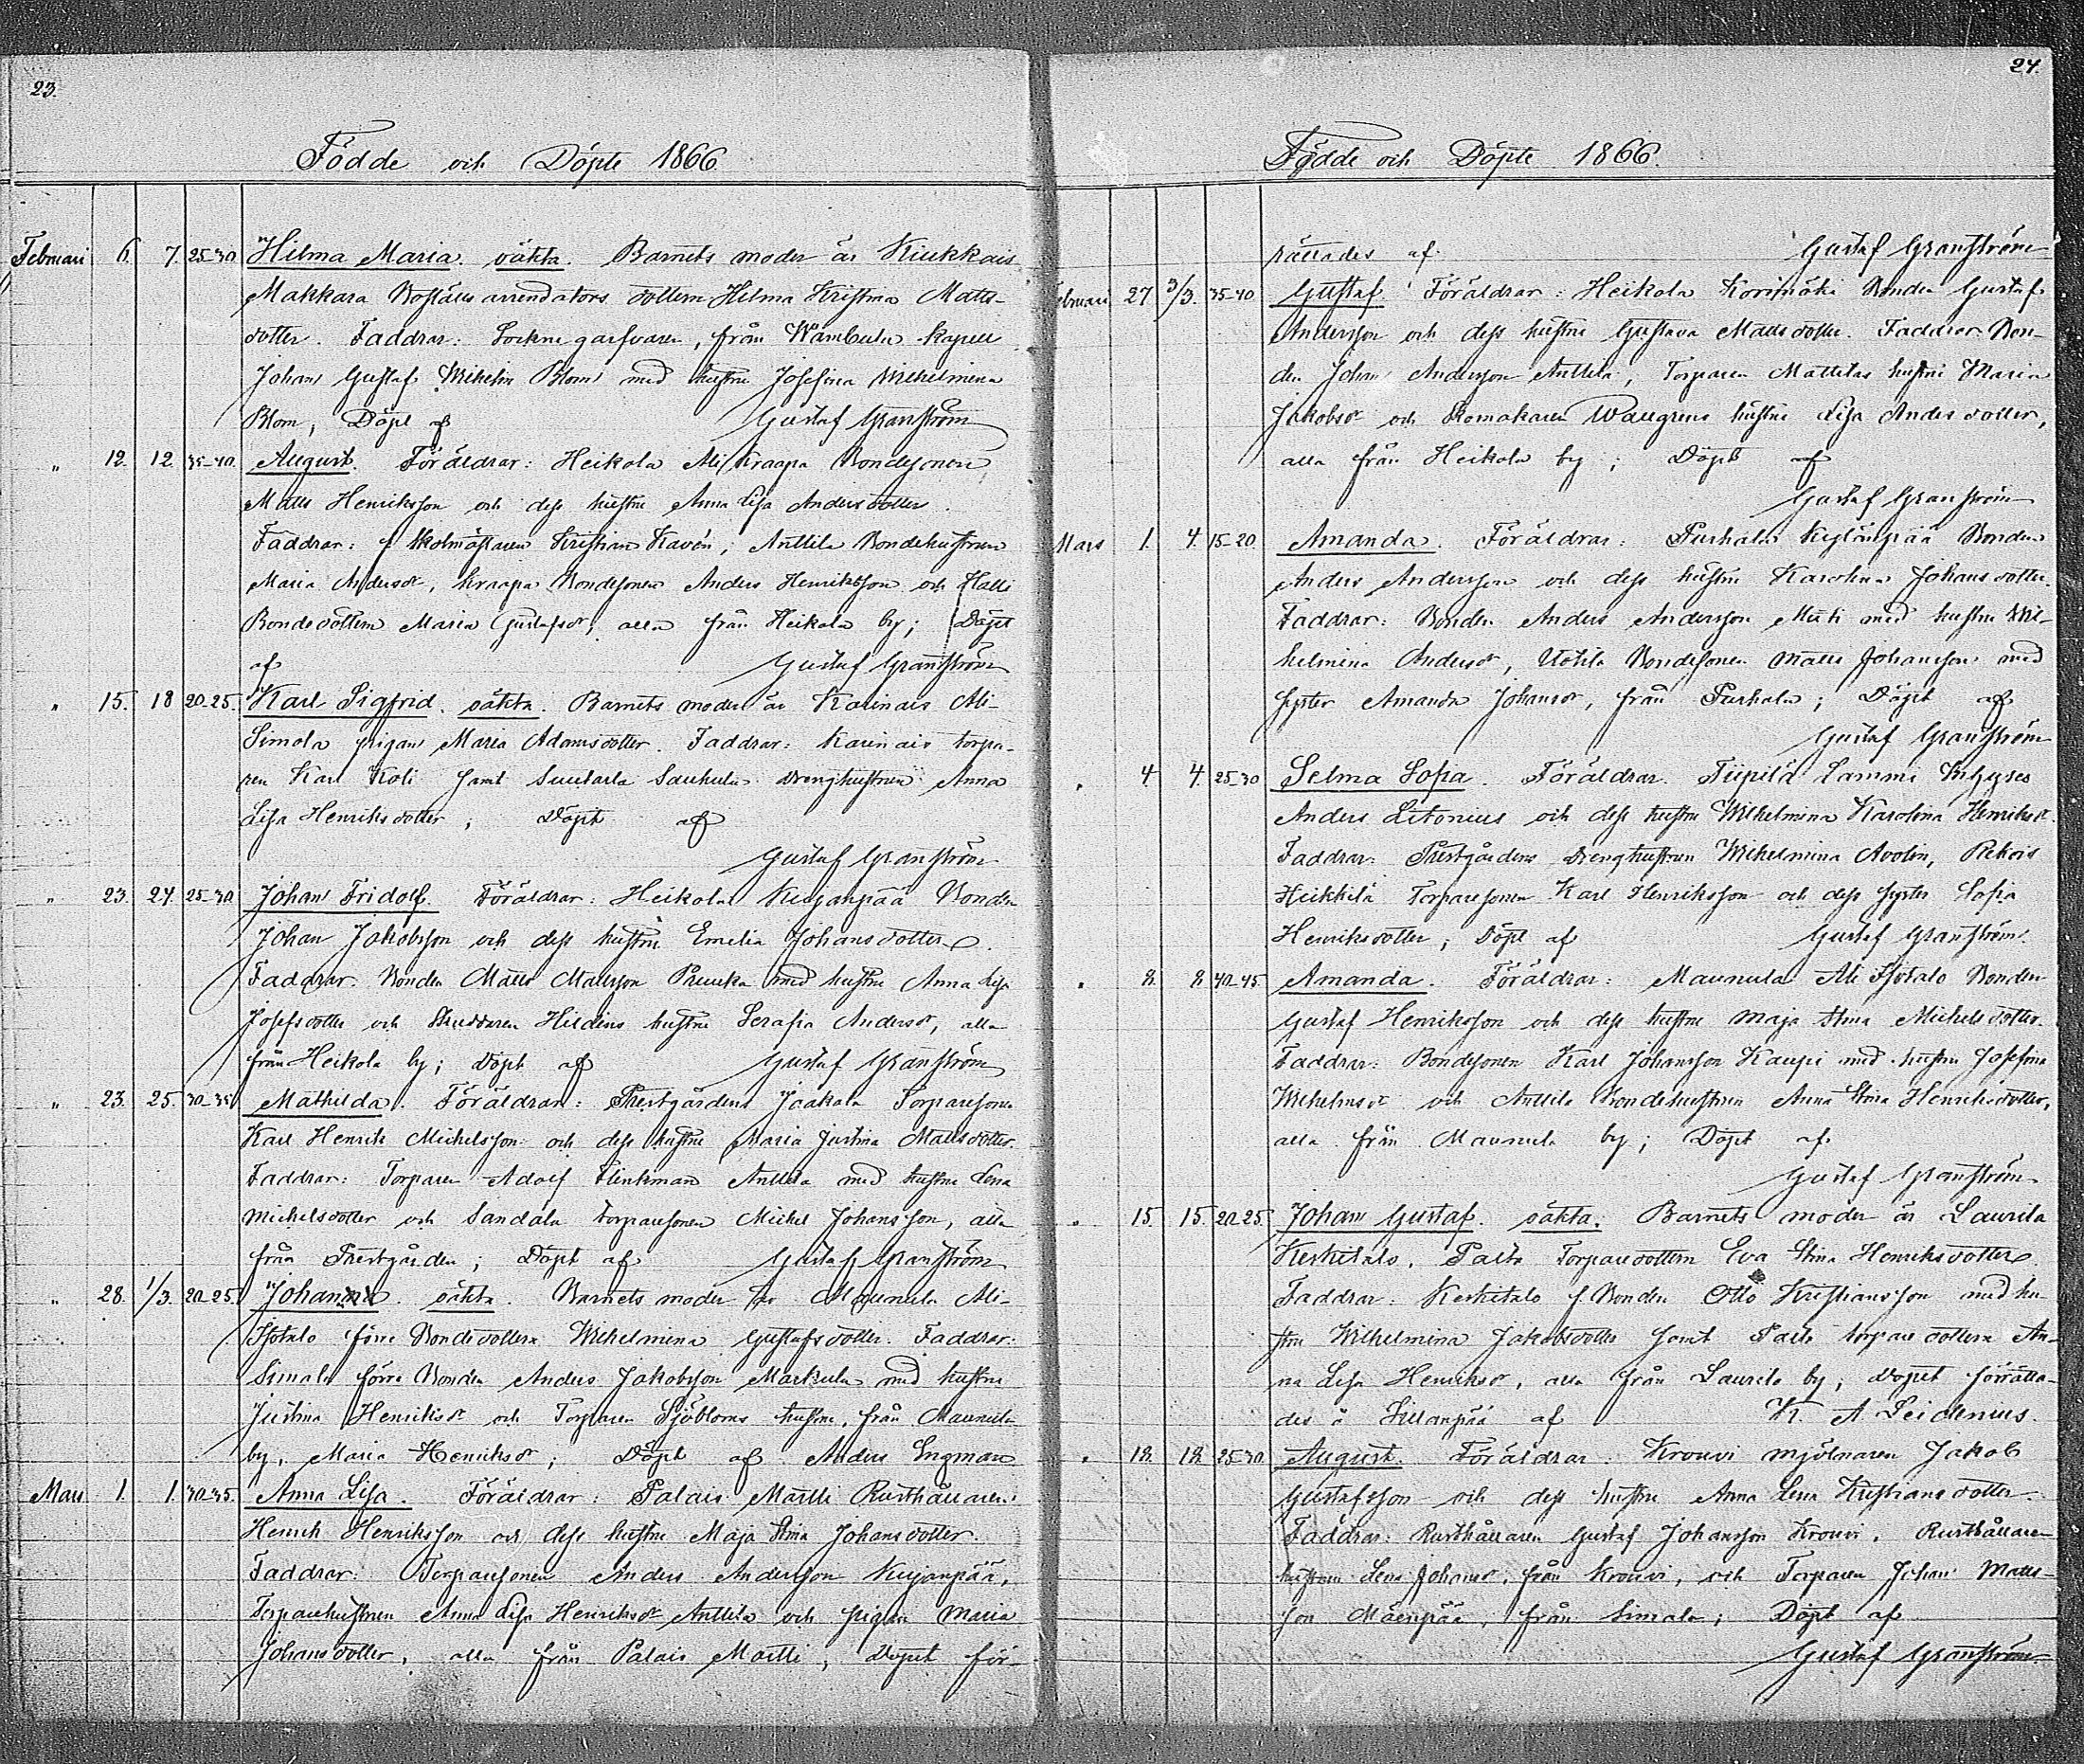 23.
Födde och Döpte 1866.
Februari 6. 7. 25-30 Hilma Maria. oäkta. Barnets moder är Kiukkais
Makkara Boställs arrendators dottern Helma Kristina Matts-
dotter. Faddrar: Sockne garfvaren, från Wambula kapell
Johan Gustaf Wilhelm Blom med hustru Josefina Wilhelmina
Blom, Döpt af Gustaf Granström
" 12. 12. 35-40. August. Föräldrar: Heikola Ali Kraapa Bondesonen
Matts Henriksson och dess hustru Anna Lisa Andersdotter.
Faddrar: f. Skolmästaren Kristian Kavén, Anttila Bondehustrun
Maria Andersdr, Kraapa Bondesonen Anders Henriksson och Halli
Bondedottern Maria Gustafsdr, alla från Heikola by; Döpt
af Gustaf Granström
" 15. 18 20-25. Karl Sigfrid. oäkta. Barnets moder är Karinais Ali-
Simola pigan Maria Adamsdotter. Faddrar: Karinais torpa-
ren Karl Koli samt Suutarla Saukula drenghustrun Anna
Lisa Henriksdotter; Döpt af
Gustaf Granström
" 23. 24. 25-30 Johan Fridolf. Föräldrar: Heikola Kujanpää Bonden
Johan Jakobsson och dess hustru Emelia Johansdotter.
Faddrar. Bonden Matts Mattsson Prunka med hustru Anna Lisa
Josefsdotter och Skräddaren Hildens hustru Serafia Andersdr, alla
från Heikola by; Döpt af Gustaf Granström
" 23. 25. 30-35 Mathilda. Föräldrar: Prestgårdens Jaakola Torparesonen
Karl Henrik Michelsson och dess hustru Maria Justina Mattsdotter.
Faddrar: Torparen Adolf Flinkman Anttila med hustru Lena
Michelsdotter och Sandala torparesonen Michel Johansson, alla
från Prestgården; Döpt af Gustaf Granström
" 28. 1/3. 20-25. Johanna. oäkta. Barnets moder är Maunula Ali-
Isotalo förre Bondedottern Wilhelmina Gustafsdotter. Faddrar:
Simala förre Bonden Anders Jakobsson Markula med hustru
Justina Henriksdr och Torparen Sjöbloms hustru, från Maunula
by, Maria Henriksdr; Döpt af Anders Engman
Mars 1. 1. 30-35. Anna Lisa. Föräldrar: Palais Martti Rusthållaren
Henrik Henriksson och dess hustru Maja Stina Johansdotter.
Faddrar: Torparesonen Anders Andersson Kujanpää,
Torparehustrun Anna Lisa Henriksdr Anttila och pigan Maria
Johansdotter, alla från Palais Martti; Dopet för-
24.
Födde och Döpte 1866.
rättades af Gustaf Granström
Februari 27 3/3. 35-40. Gustaf. Föräldrar: Heikola Korimäki Bonden Gustaf
Andersson och dess hustru Gustava Mattsdotter. Faddrar. Bon-
den Johan Andersson Anttila, Torparen Mattilas hustru Maria
Jakobsdr och Skomakaren Wallgrens hustru Lisa Andersdotter,
alla från Heikola by; Döpt af
Gustaf Granström
Mars 1. 4. 15-20. Amanda. Föräldrar: Purhala Kylänpää Bonden
Anders Andersson och dess hustru Karolina Johansdotter.
Faddrar: Bonden Anders Andersson Muti med hustru Wil-
helmina Andersdr, Uotila Bondesonen Matts Johansson med
syster Amanda Johansdr, från Purhala; Döpt af
Gustaf Granström
" 4. 4. 25-30 Selma Sofia. Föräldrar. Tiipilä Lammi Inhyses
Anders Litonius och dess hustru Wilhelmina Karolina Henriksdr.
Faddrar: Prestgårdens drenghustrun Wilhelmina Avolin, Rekois
Heikkilä Torparesonen Karl Henriksson och dess syster Sofia
Henriksdotter; Döpt af Gustaf Granström.
" 8. 8. 40-45. Amanda. Föräldrar: Maunula Ali Isotalo Bonden
Gustaf Henriksson och dess hustru Maja Stina Michelsdotter.
Faddrar: Bondesonen Karl Johansson Kaupi med hustru Josefina
Wilhelmsdr och Anttila Bondehustrun Anna Stina Henriksdotter,
alla från Maunula by; Döpt af
Gustaf Granström
" 15. 15. 20-25. Johan Gustaf. oäkta. Barnets moder är Laurila
Keskitalo, Palta Torparedottern Eva Stina Henriksdotter.
Faddrar: Keskitalo f. Bonden Otto Kristiansson med hu-
stru Wilhelmina Jakobsdotter samt Palta torparedottern An-
na Lisa Henriksdr, alla från Laurila by; Dopet förrätta-
des å Sillanpää af K. A. Leidenius.
" 18. 18. 25-30 August. Föräldrar: Krouvi mjölnaren Jakob
Gustafsson och dess hustru Anna Lena Kristiansdotter.
Faddrar: Rusthållaren Gustaf Johansson Krouvi, Rusthållare-
hustrun Lena Johansdr, från Krouvi, och Torparen Johan Matts-
son Mäenpää, från Simala; Döpt af
Gustaf Granström